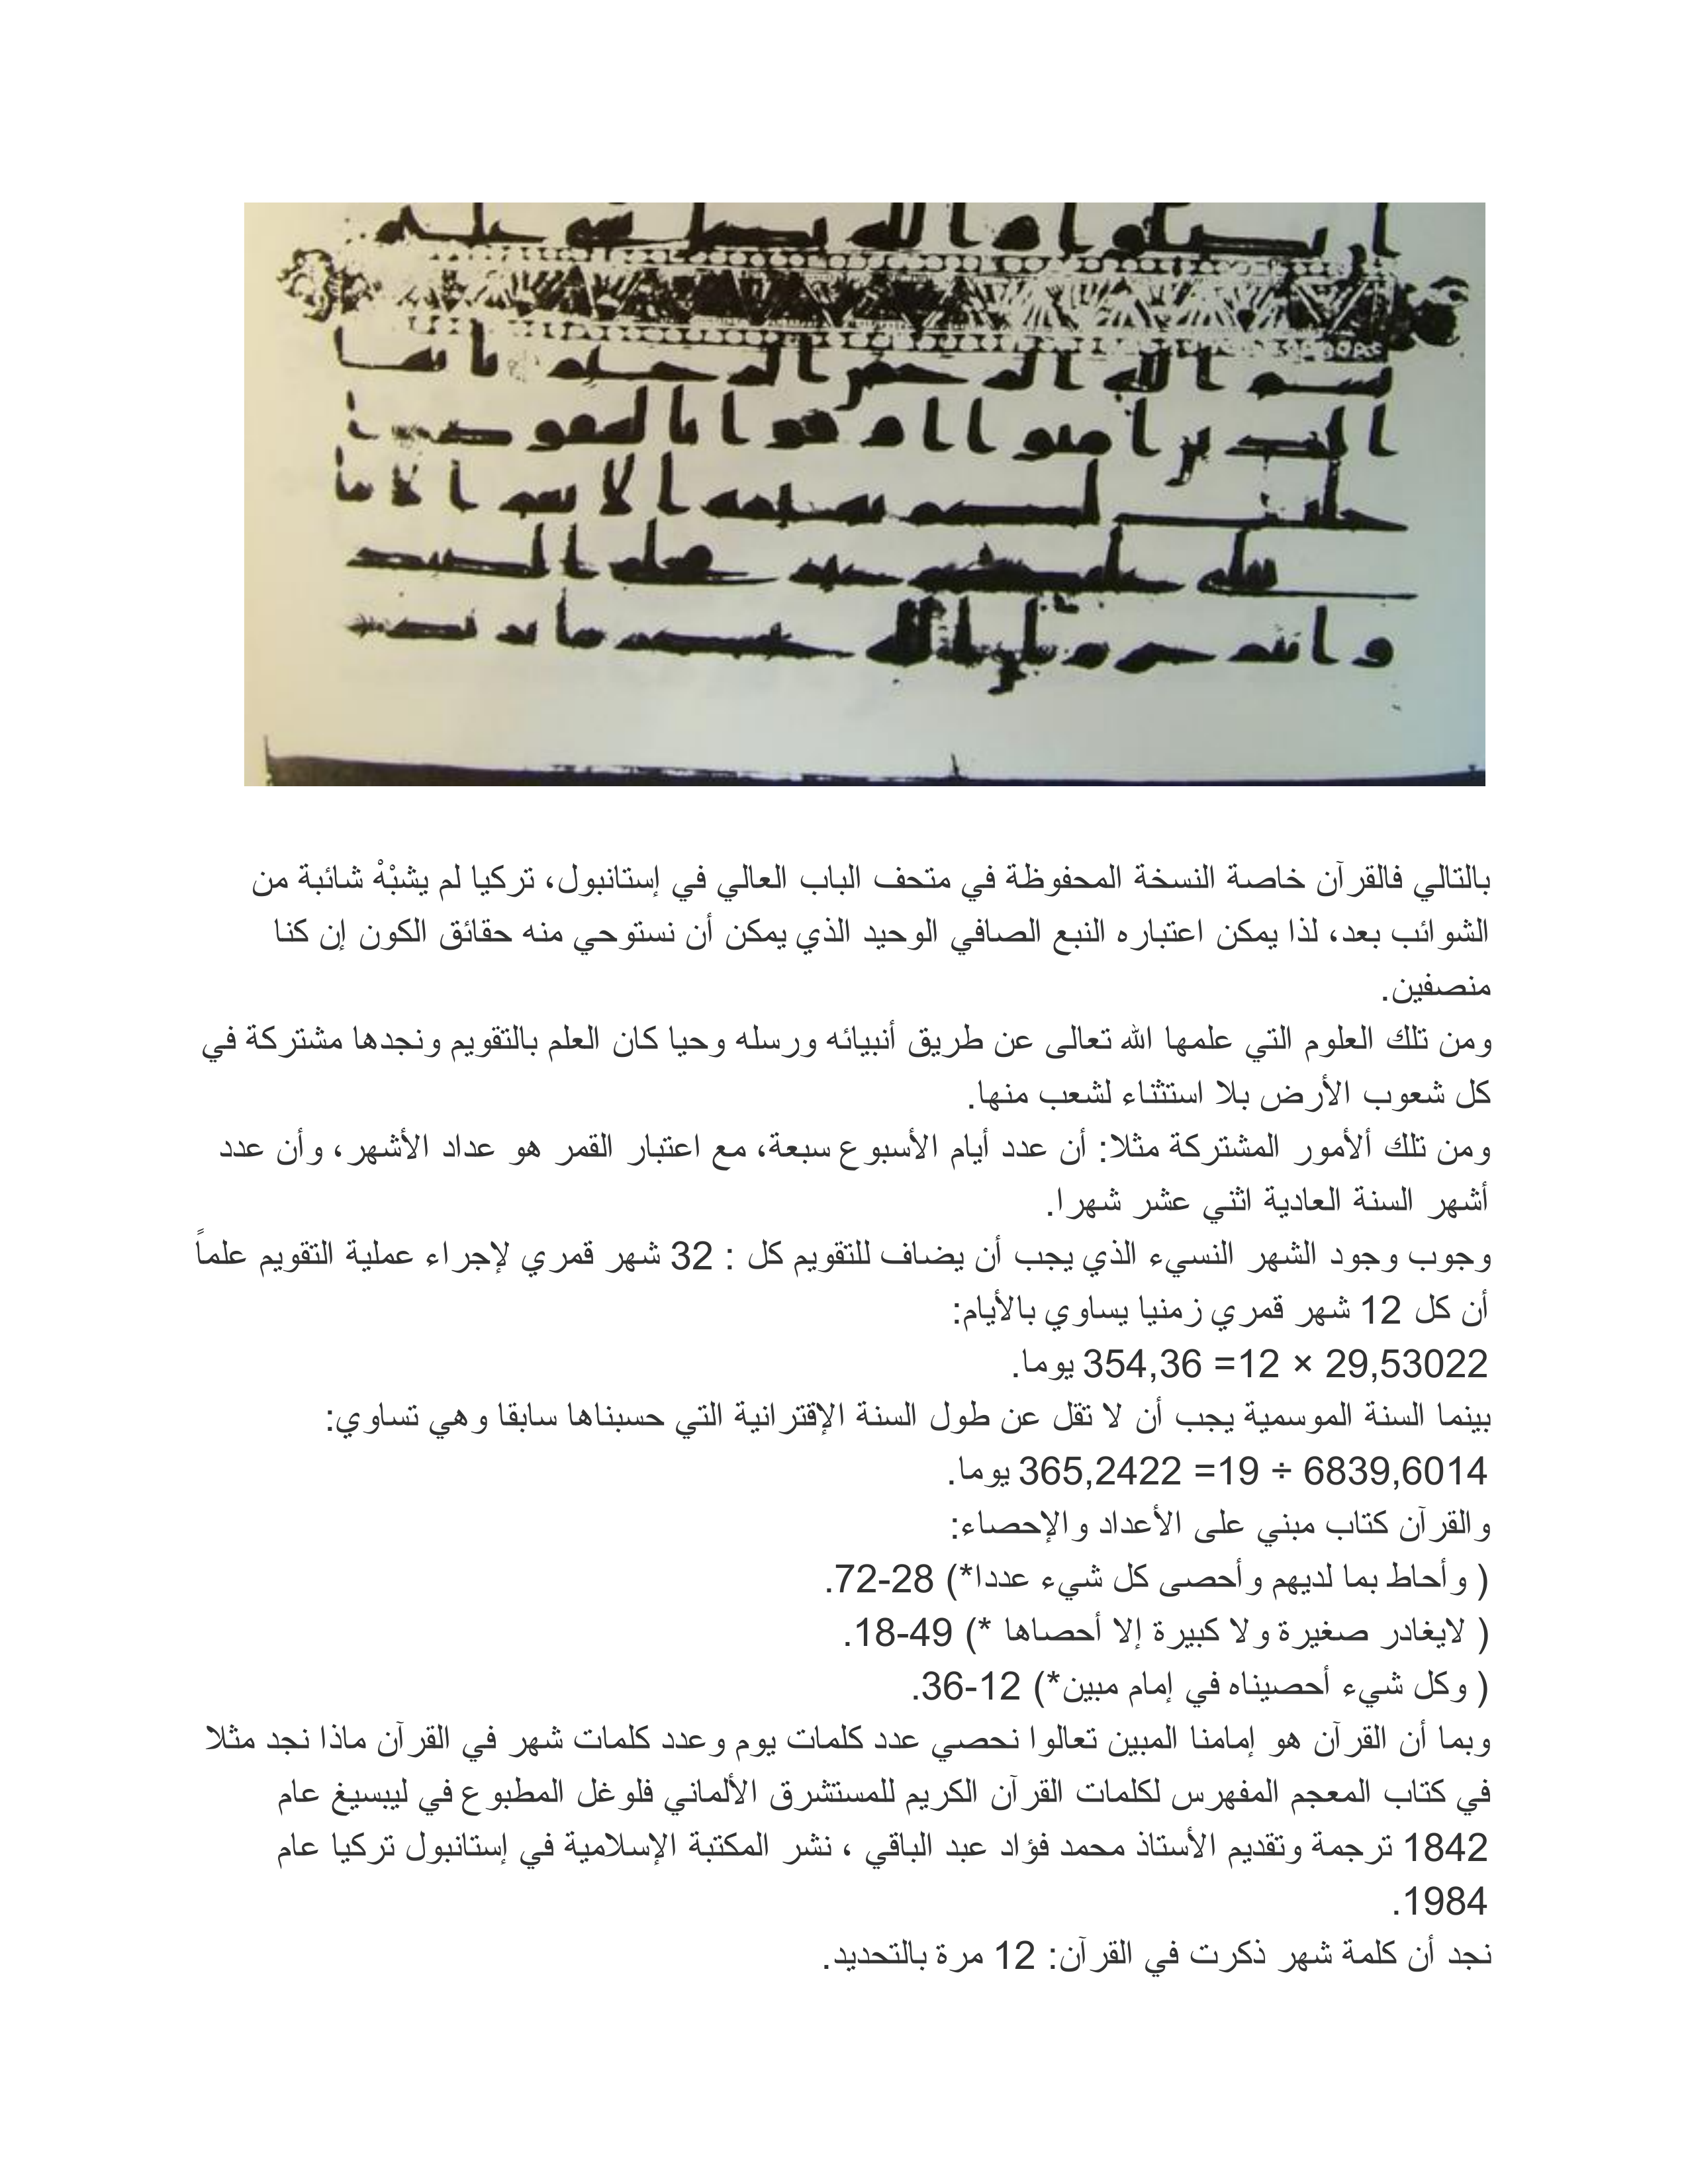 بسم الله الرحمن الرحيم يا يها
الذين امنوا اوفوا بالعقود ا
حلت لكم بهيمة الا نعم الا ما
يتلى عليكم غير محلى الصيد
وانتم حرم ان الله يحكم ما يريد
بالتالي فالقرآن خاصة النسخة المحفوظة في متحف الباب العالي في إستانبول، تركيا لم يشبْهْ شائبة من
الشوائب بعد، لذا يمكن اعتباره النبع الصافي الوحيد الذي يمكن أن نستوحي منه حقائق الكون إن كنا
منصفين.
ومن تلك العلوم التي علمها الله تعالى عن طريق أنبيائه ورسله وحيا كان العلم بالتقويم ونجدها مشتركة في
كل شعوب الأرض بلا استثناء لشعب منها.
ومن تلك ألأمور المشتركة مثلا: أن عدد أيام الأسبوع سبعة، مع اعتبار القمر هو عداد الأشهر، وأن عدد
أشهر السنة العادية اثني عشر شهرا.
وجوب وجود الشهر النسيء الذي يجب أن يضاف للتقويم كل : 32 شهر قمري لإجراء عملية التقويم علماً
أن كل 12 شهر قمري زمنيا يساوي بالأيام:
29,53022 × 12= 354,36 يوما.
بينما السنة الموسمية يجب أن لا تقل عن طول السنة الإقترانية التي حسبناها سابقا وهي تساوي:
6839,6014 ÷ 19= 365,2422 يوما.
والقرآن كتاب مبني على الأعداد والإحصاء:
( وأحاط بما لديهم وأحصى كل شيء عددا*) 28-72.
( لايغادر صغيرة ولا كبيرة إلا أحصاها *) 49-18.
( وكل شيء أحصيناه في إمام مبين*) 12-36.
وبما أن القرآن هو إمامنا المبين تعالوا نحصي عدد كلمات يوم وعدد كلمات شهر في القرآن ماذا نجد مثلا
في كتاب المعجم المفهرس لكلمات القرآن الكريم للمستشرق الألماني فلوغل المطبوع في ليبسيغ عام
1842 ترجمة وتقديم الأستاذ محمد فؤاد عبد الباقي ، نشر المكتبة الإسلامية في إستانبول تركيا عام
1984.
نجد أن كلمة شهر ذكرت في القرآن: 12 مرة بالتحديد.